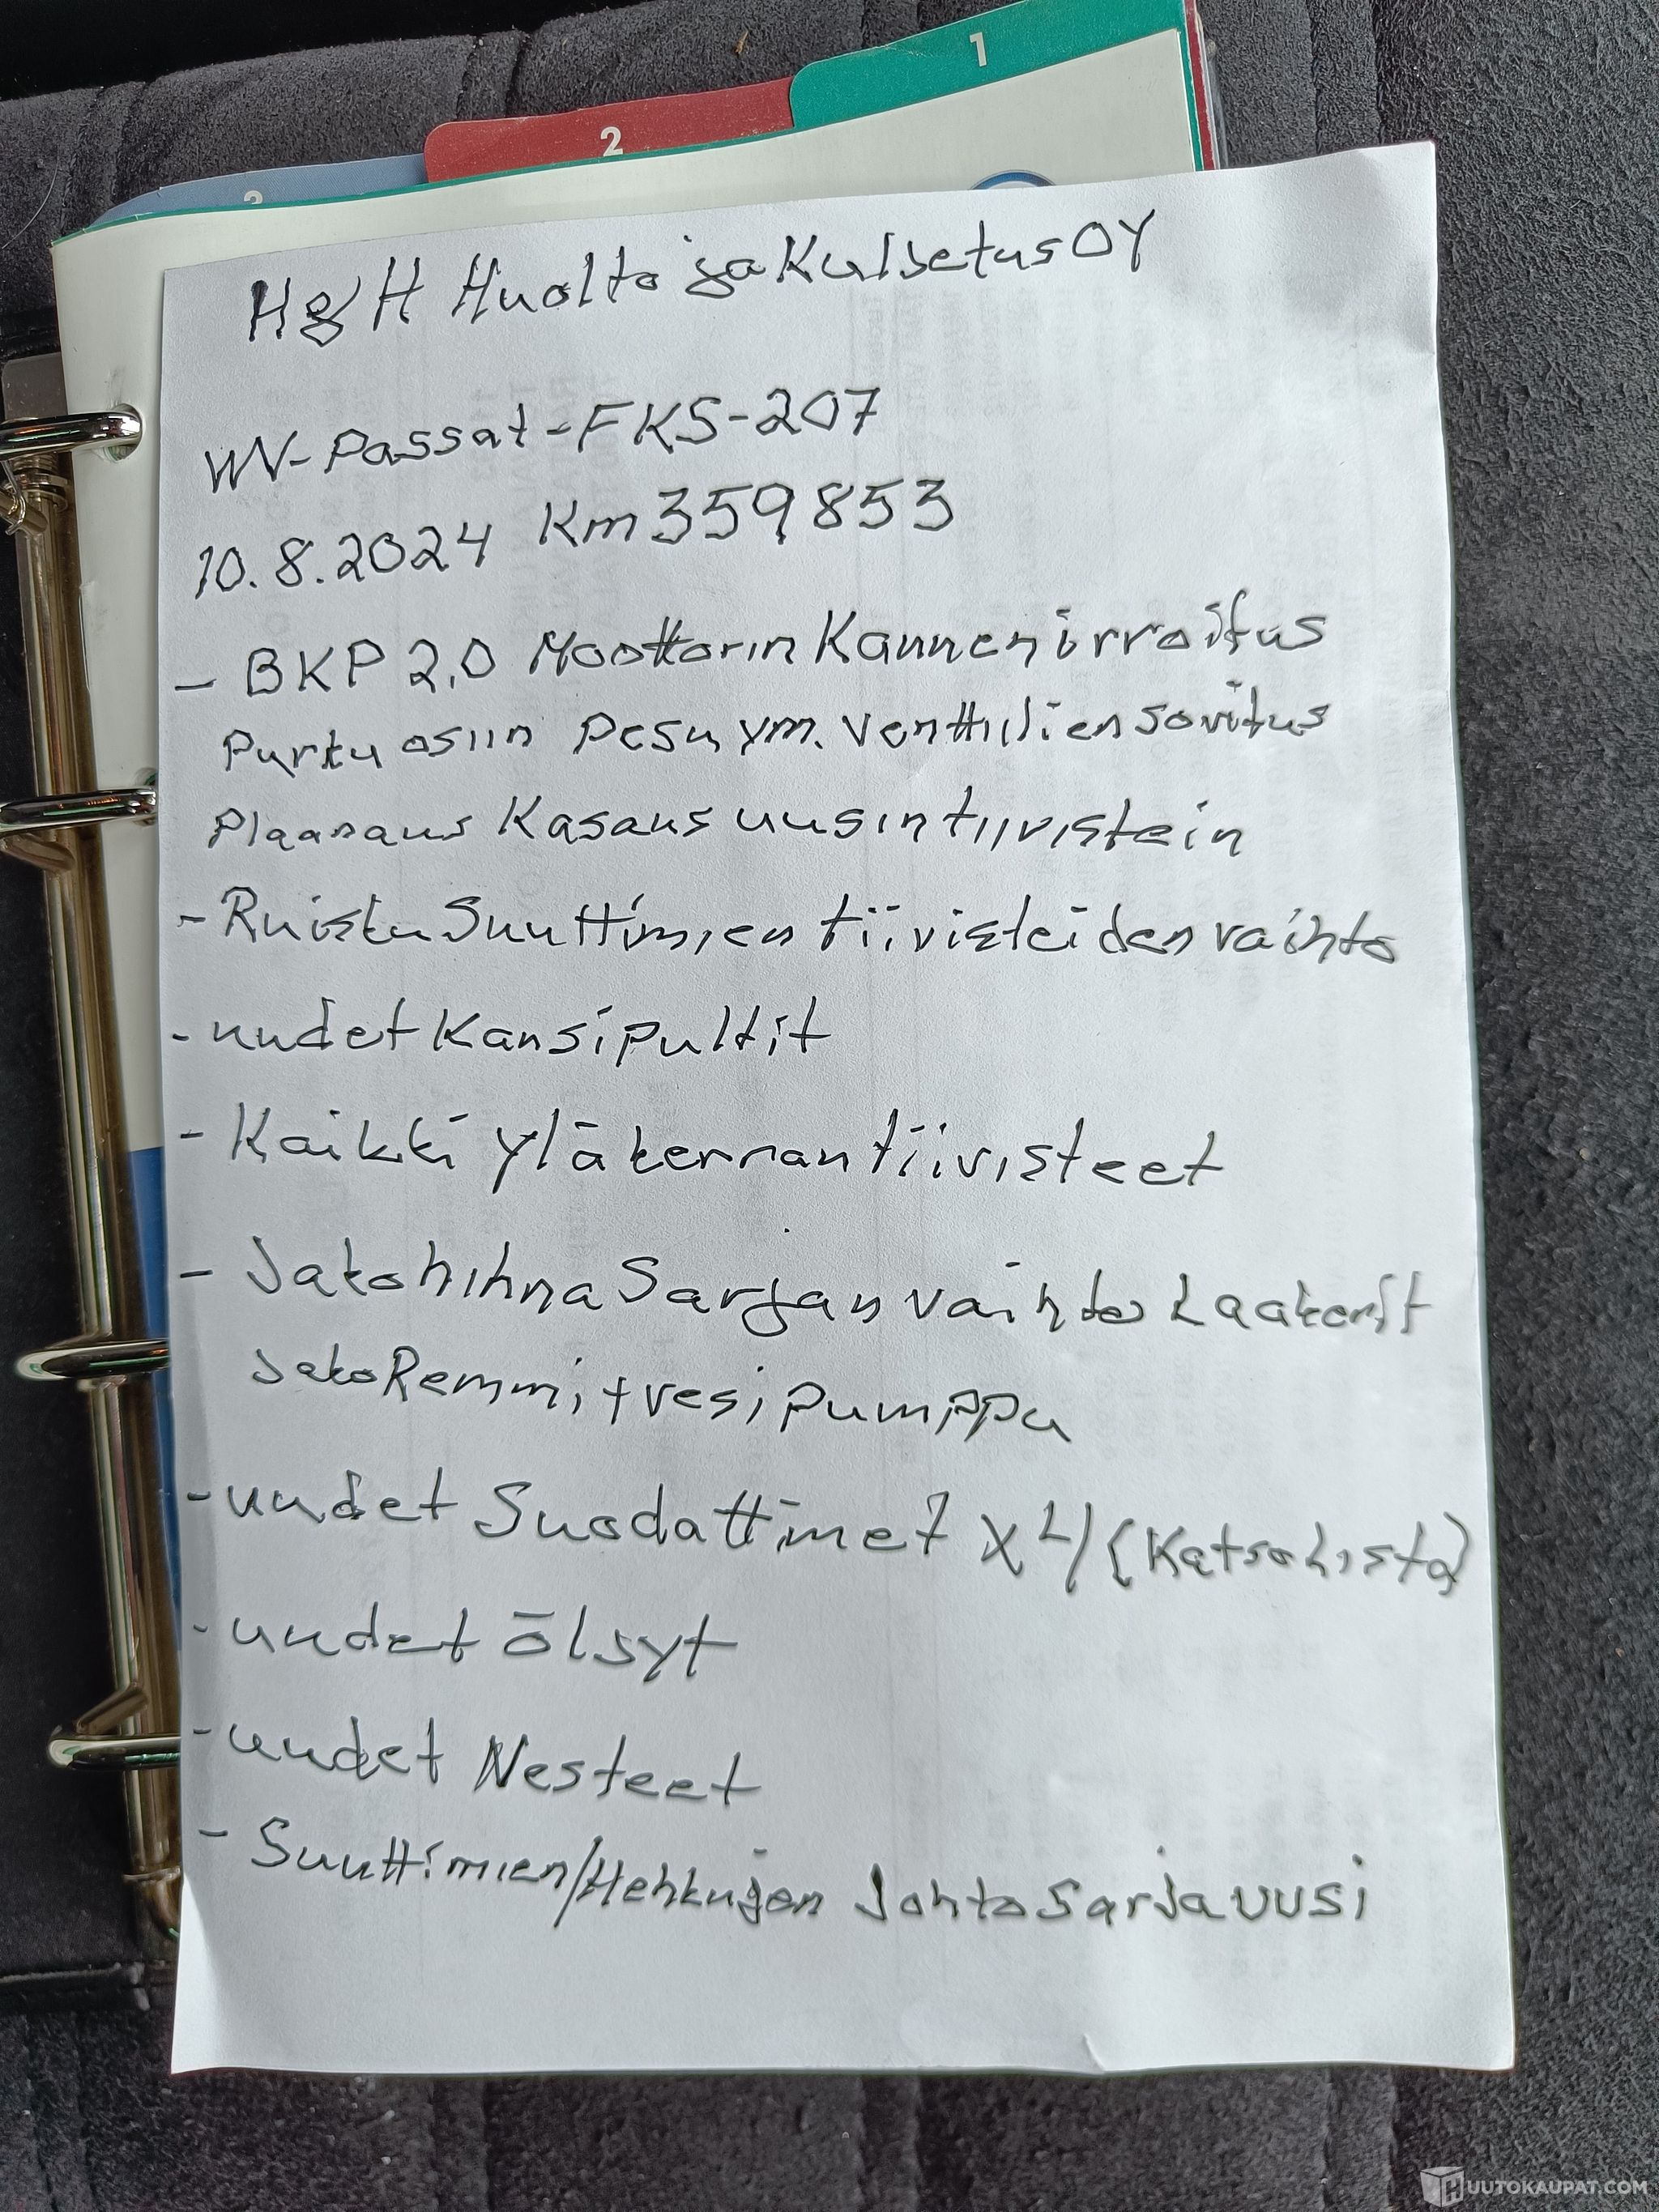 1
2
3
H&H Huolto ja Kuljetus OY
WV-Passat-FKS-207
10.8.2024 Km 359853
- BKP 2,0 Moottorin Kannen irroitus
Purku osiin Pesu ym. Venttiilien sovitus
Plaanaus Kasaus uusin tiivistein
- Ruisku Suuttimien tiivisteiden vaihto
- uudet Kansipultit
- Kaikki yläkerran tiivisteet
- Jakohihna Sarjan vaihto Laakerit
Jako Remmi + vesi Pumppu
- uudet Suodattimet X4/(Katso Lista)
- uudet öljyt
- uudet Nesteet
- Suuttimien/Hehkujen Johto Sarja UUSI
HUUTOKAUPAT.COM